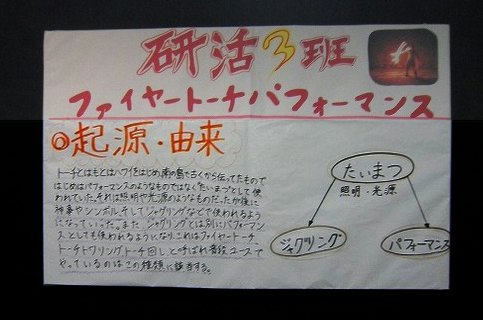 研活3班
ファイヤートーチパフォーマンス
◎起源・由来
トーチとはもとはハワイをはじめ、南の島で古くから伝ってたもので
はじめはパフォーマンスのようなものではなく「たいまつ」として使
われていた。それは照明や光源のようなものだったが後に
神事やシンボル、そしてジャグリングなどで使われるように
なっていった。また、ジャグリングとは別にパフォーマン
スとしても使われるようになり、これはファイヤートーチ、
トーチトワリング、トーチ回しと呼ばれ普段ユースで
やっているのはこの種類に該当する。
たいまつ
照明・光源
ジャグリング
パフォーマンス